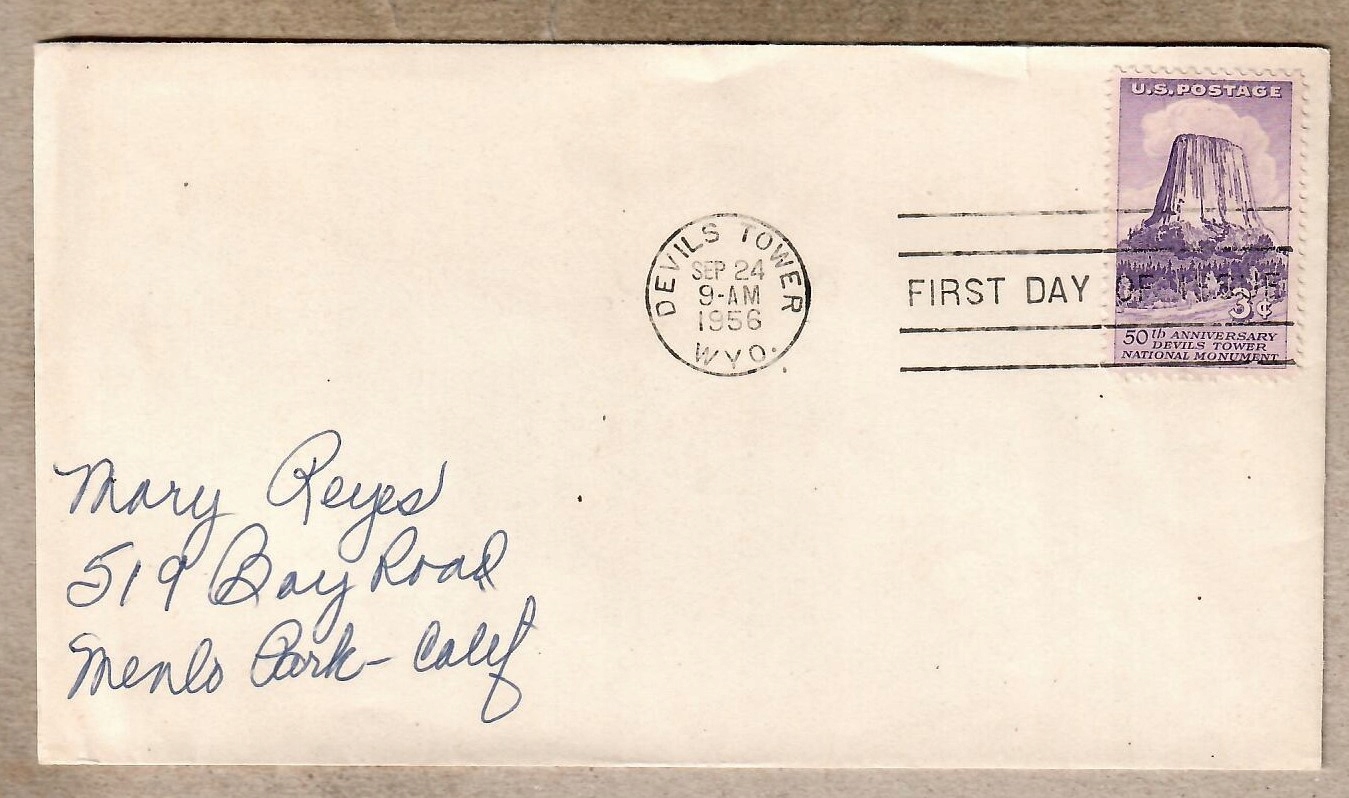 U.S.POSTAGE
DEVILS TOWER
SEP 24
9-AM
1956
WYO.
FIRST DAY OF ISSUE
3¢
50th ANNIVERSARY
DEVILS TOWER
NATIONAL MONUMENT
Mary Reyes
519 Bay Road
Menlo Park - Calif